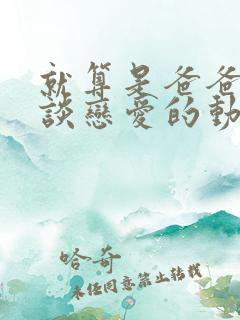 就算是爸爸
談戀愛的動
哈奇
未經同意禁止轉載